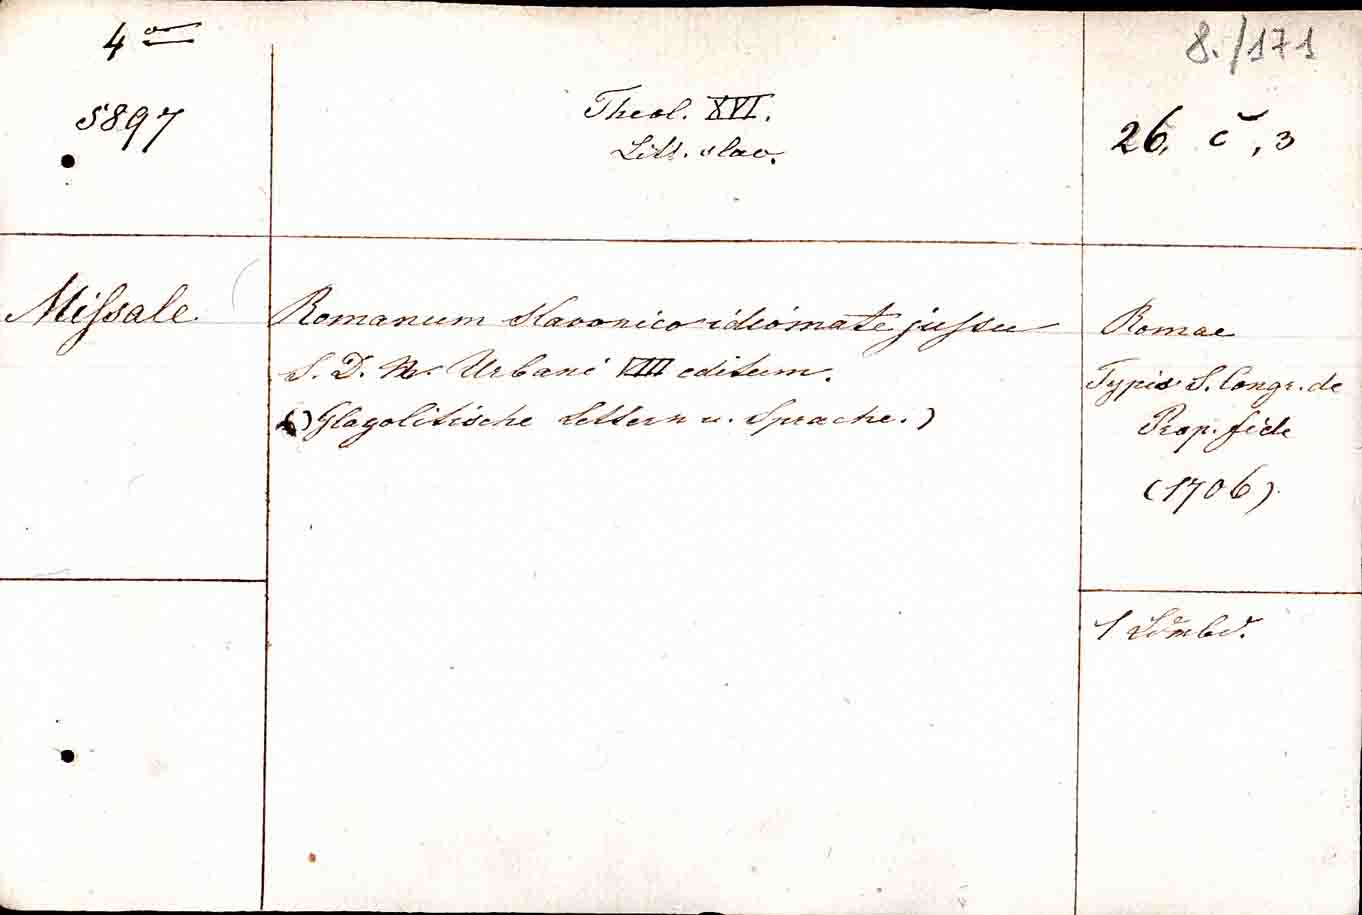 4o
8./171
5897
Theol. XVI.
Litt. slav.
26, č, 3
Missale
Romanum slavonico idiomate jussu
S. D. N. Urbani VIII editum.
() Glagolitische Lettern u. Sprache.)
Romae
Typis S. Congr. de
Prop. fide
(1706).
1